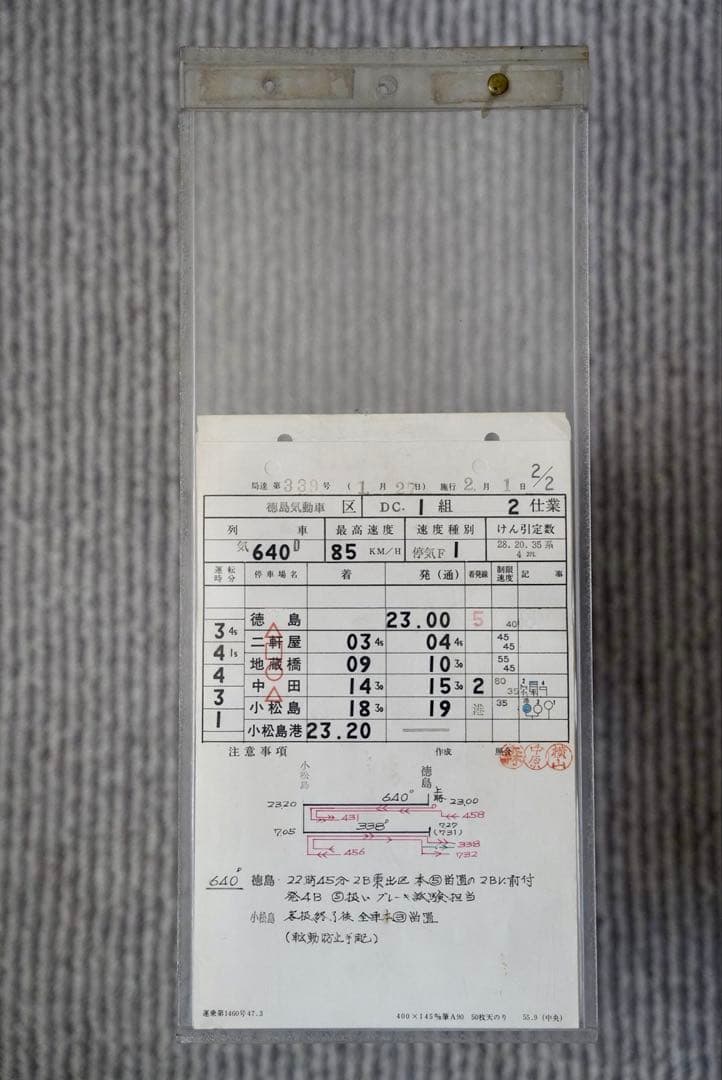 局達 第 339 号 (1 月 25 日) 施行 2 月 1 日 2/2
徳島気動車 区 DC. 1 組 2 仕業
列 車 最高速度 速度種別 けん引定数
気 640D 85 KM/H 停気F 1 28.20.35系
運転時分 停車場名 着 発(通) 着発線 制限速度 記 事
徳島 23.00 5 40
3 45
二軒屋 03 45 04 45 45 45
4 15
地蔵橋 09 10 30 55 45
4
中田 14 30 15 30 2 80 35
3
小松島 18 30 19 港 35
1
小松島港 23.20
注意事項 作成 照合
森 中原 横山
小松島 徳島
上り
23.20 640D 23.00
431 458
7.05 338D 727
(731)
338
456 732
640D 徳島. 22時45分 2B東出区 本⑤留置の2Bに前付
発4B ⑤扱い ブレーキ試験担当
小松島
(転動防止手配)
運乗第1460号47.3 400×145㎜筆A90 50枚天のり 55.9(中央)